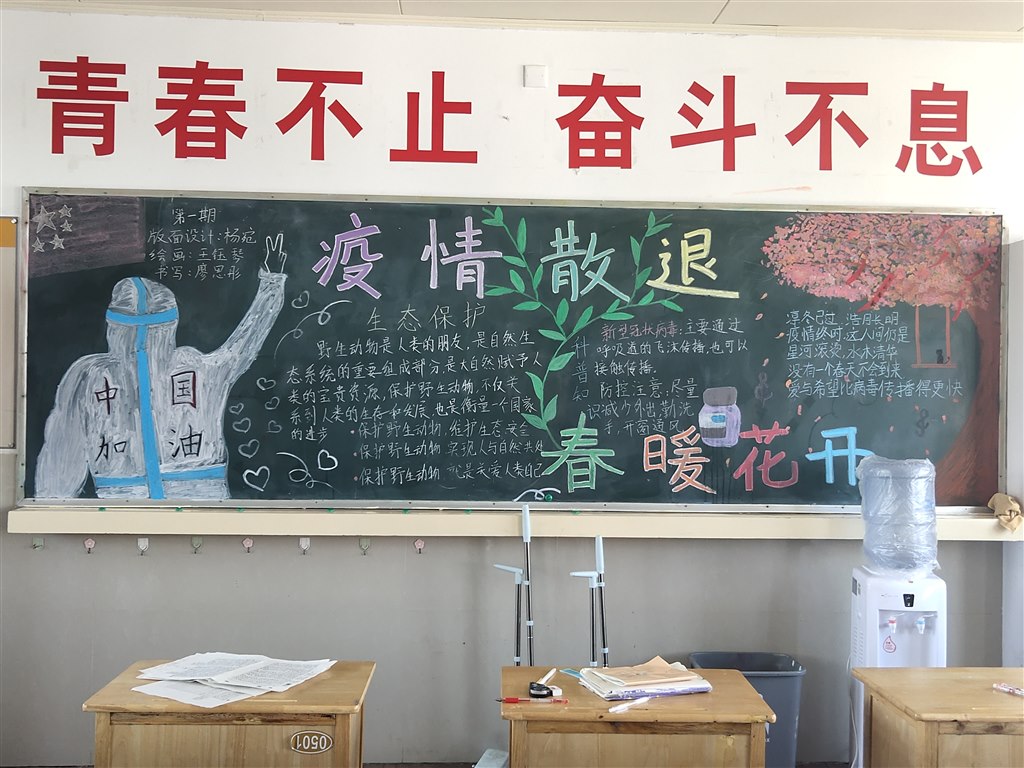 青春不止 奋斗不息
第一期
版面设计:杨宛
绘画:王钰琴
书写:廖思彤
疫情散退
中国
加油
生态保护
野生动物是人类的朋友,是自然生
态系统的重要组成部分,是大自然赋予人
类的宝贵资源,保护野生动物,不仅关
系到人类的生存和发展,也是衡量一个国家
的进步
·保护野生动物,维护生态安全
·保护野生动物 实现人与自然共处
·保护野生动物 就是关爱人类自己
科普知识
新型冠状病毒:主要通过
呼吸道的飞沫传播,也可以
接触传播.
防控注意:尽量
减少外出,勤洗
手,开窗通风
春暖花开
凛冬已过 浩月长明
疫情终时,这人间仍是
星河滚烫,水木清华
没有一个春天不会到来
爱与希望比病毒传播得更快
0501